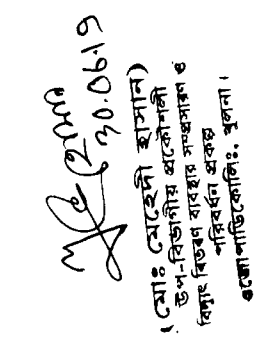 হাসান
30.06.19
(মোঃ মেহেদী হাসান)
উপ-বিভাগীয় প্রকৌশলী
বিদ্যুৎ বিতরণ ব্যবস্থার সম্প্রসারণ ও
পরিবর্ধন প্রকল্প
ওজোপাডিকোলিঃ, খুলনা।